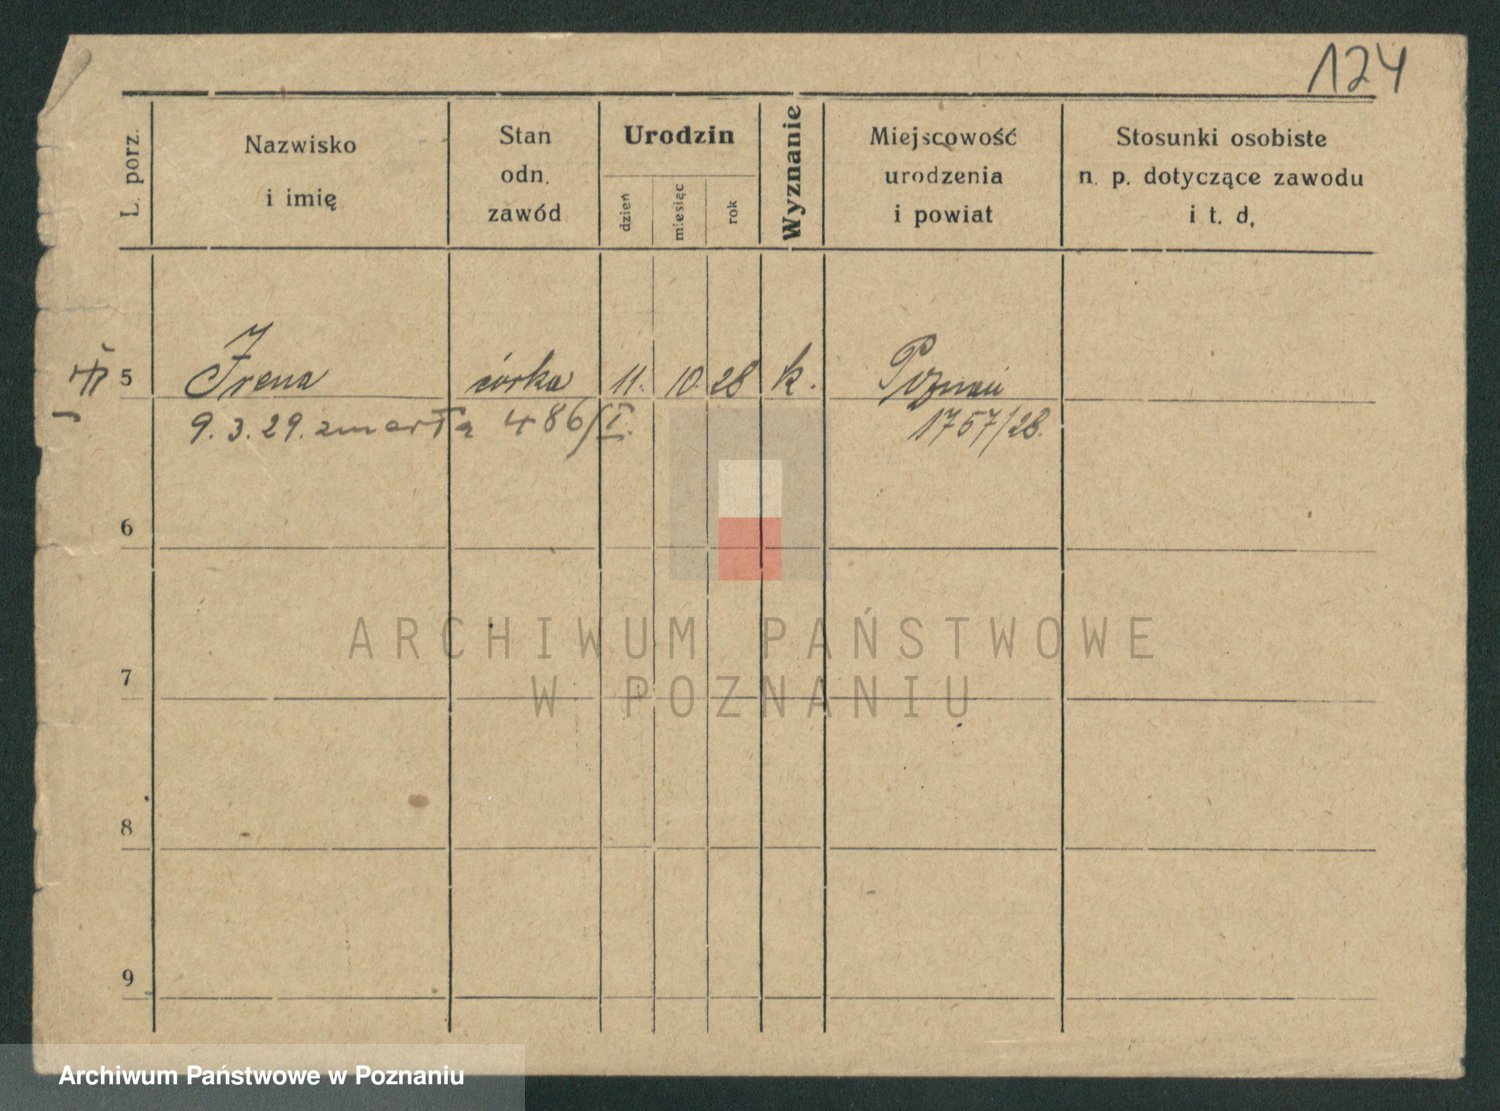 124
L. porz.
Nazwisko
i imię
Stan
odn.
zawód
Urodzin
dzień
miesiąc
rok
Wyznanie
Miejscowość
urodzenia
i powiat
Stosunki osobiste
n. p. dotyczące zawodu
i t. d,
5 Irena córka 11. 10. 28 k. Poznań
9. 3. 29. zmarła 486/I. 1757/28.
6
ARCHIWUM PAŃSTWOWE
W POZNANIU
7
8
9
Archiwum Państwowe w Poznaniu